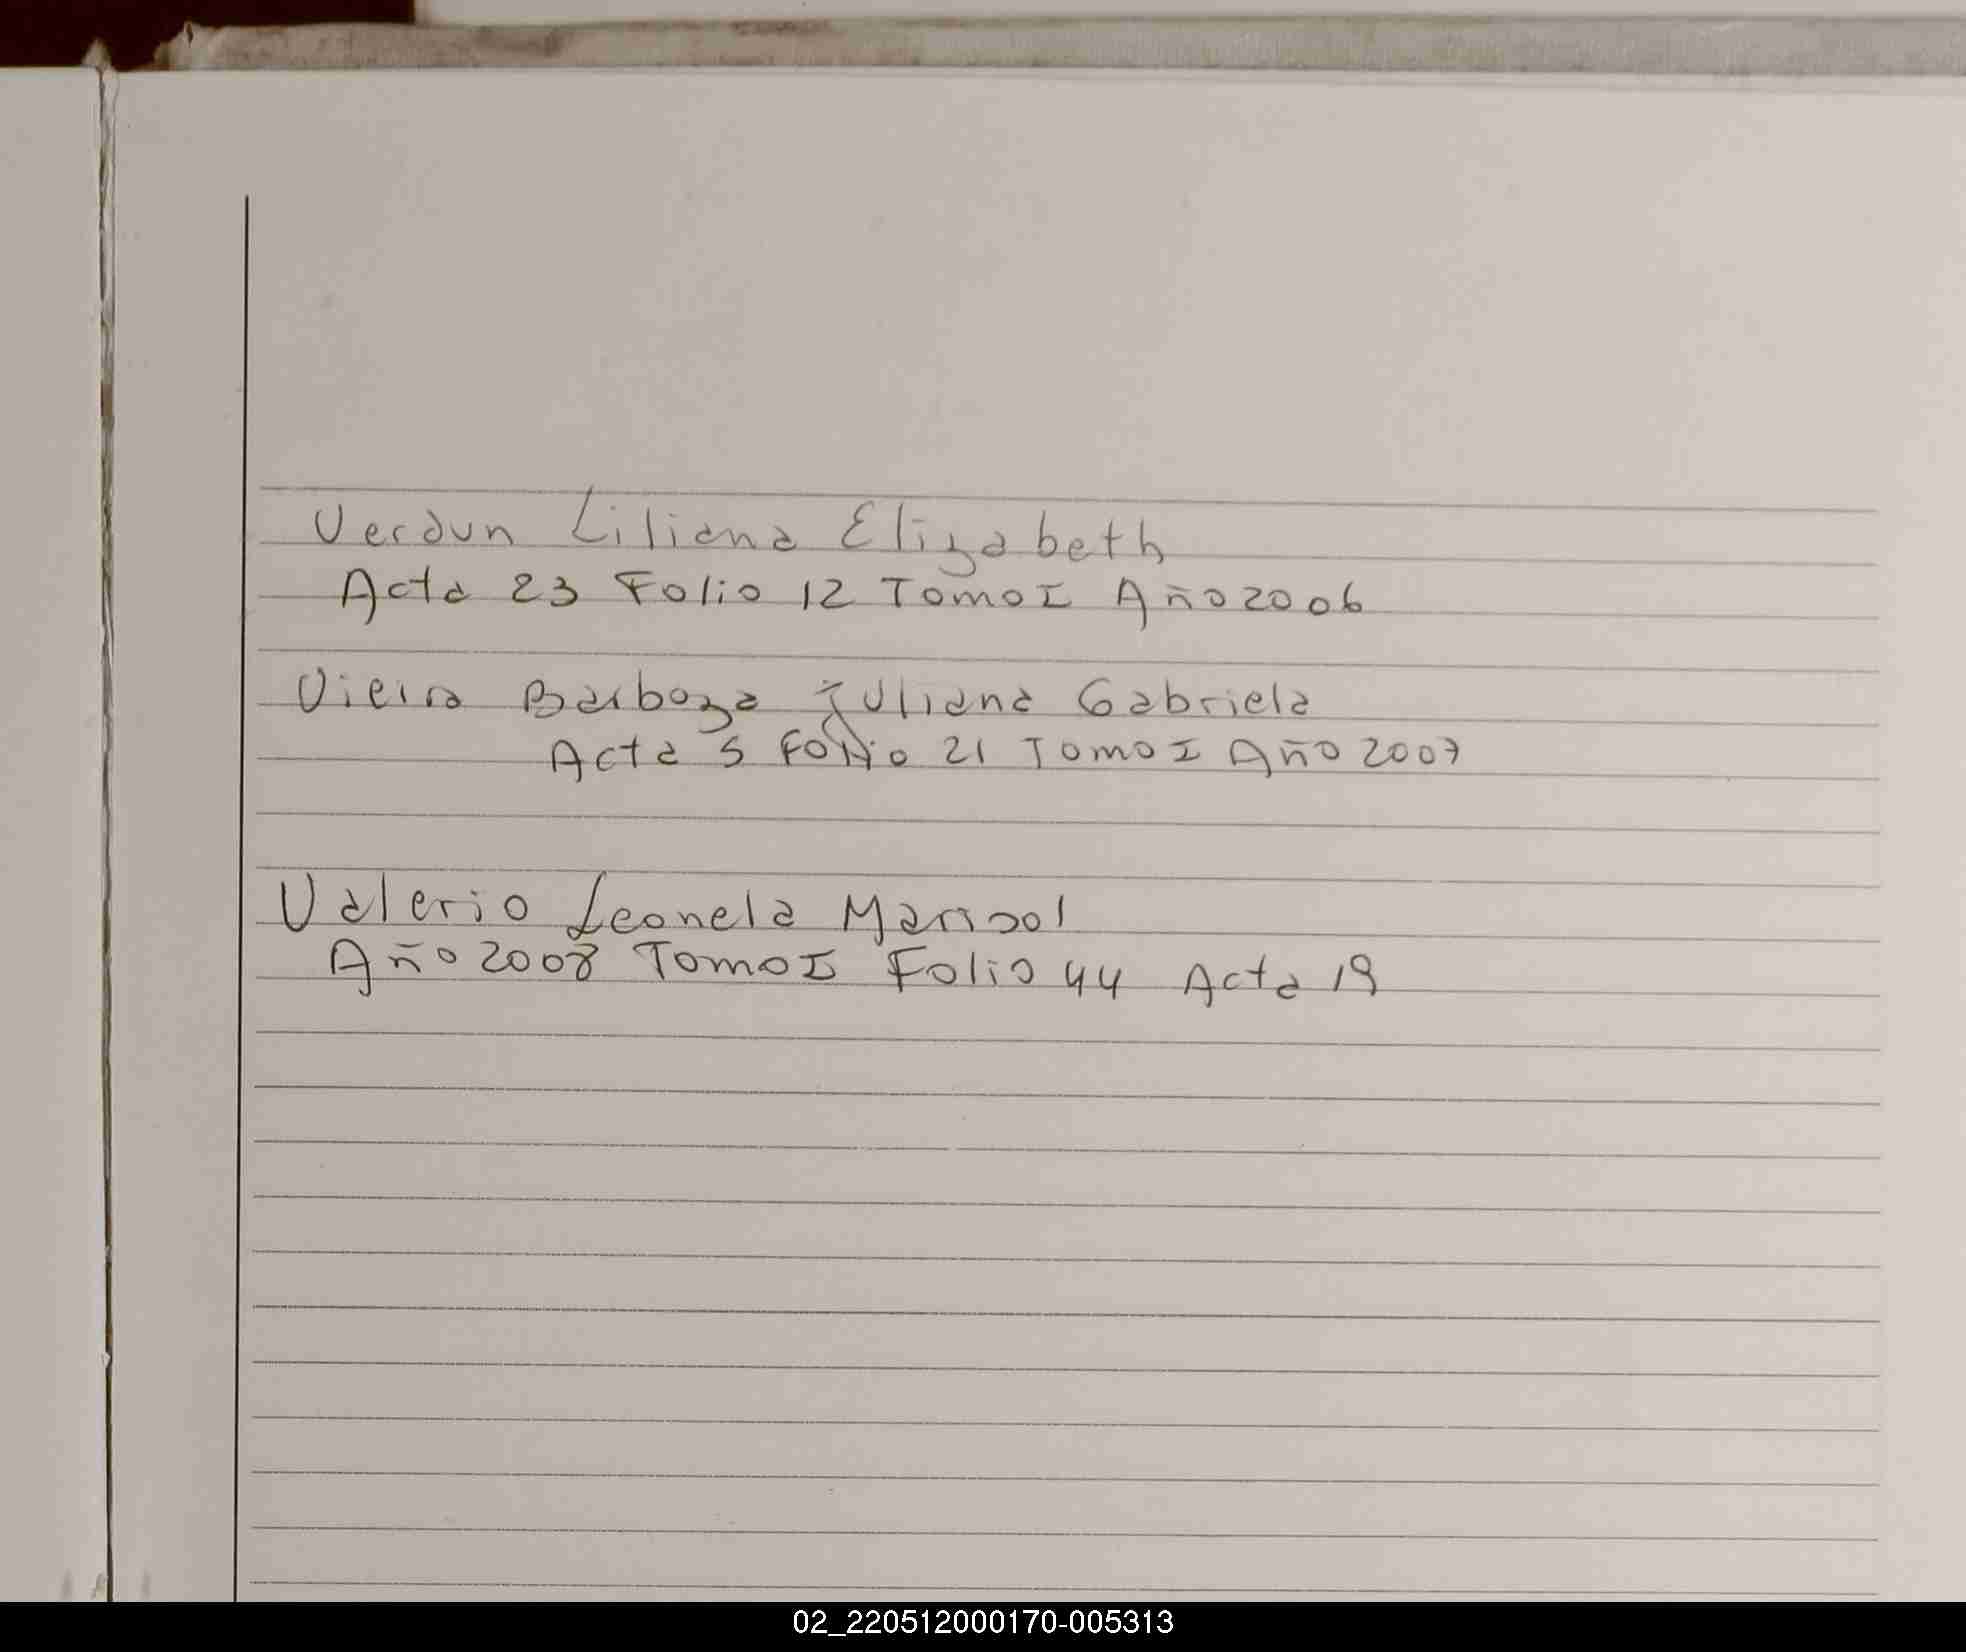 Verdun Liliana Elizabeth
Acta 23 Folio 12 Tomo I Año 2006
Vieira Barboza Juliana Gabriela
Acta 5 Folio 21 Tomo I Año 2007
Valerio Leonela Marisol
Año 2008 Tomo I Folio 44 Acta 19
02_220512000170-005313